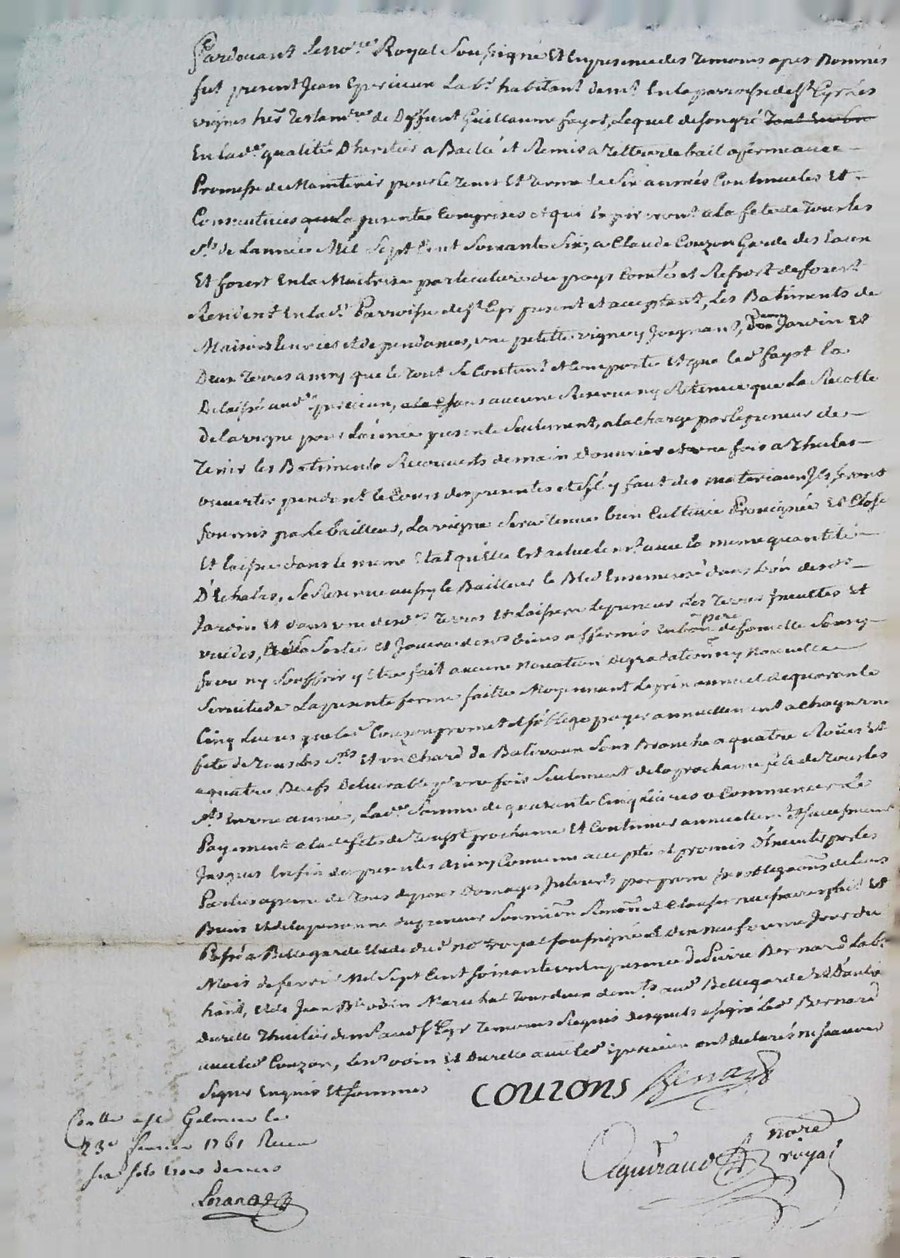 Pardevant Le no.re Royal Soussigné Et En presence des Temoins apres Nommés
fut present Jean Epercieux Lab.r habitant dem.t En la parroisse de S.t Cyr Les
vignes her. Testam.re de Deffunt Guillaume fayot, Lequel de son gré
En lad.e qualité D'heritier a Baillé et Remis a Tiltre de bail a ferme avec
Promesse de Maintenir pour le Tems Et Terme de Six années Continuelles Et
Consecutives la presente Comprises et qui Expireront a la fete de Tous les
S.ts de L'année Mil Sept Cent Soixante Six, a Claude Couzon Garde des Eaux
Et forest En la Maitrise particuliere du pays Comté et Ressort de forest
Resident En lad. Parroisse de S.t Cyr present et acceptant, Les Batiments de
Maison, Curées et dependances, une petitte vigne y Joignant, Jardin Et
Deux Terres ainsy que le Tout Se Contient et Comporte Et que led. fayot la
Delaissé aud. Epercieux, Sans aucune Reserve ny Retenue que La Recolte
de la vigne pour L'année presente Seulement, a la charge par le preneur de
Tenir les Batiments Recouverts de main d'ouvrier et une fois a Thuiles
ouvertes pendent le Cours des presentes et S'il y faut des materiaux Ils seront
fournis par Le Bailleur, La vigne Sera Tenue bien Cultivée Provignée Et Close
Et laissée dans le meme Etat qu'Elle Est actuelement avec la meme quantité
D'Echalas, Se Reserve aussy le Bailleur le Bled Ensemencé dans L'un des
Jardin Et dans une desd. Terres Et Laissera le preneur Les Terres Incultes Et
vuides, a la Sortie Et Jouira desd. biens affermés En bon pere de famille Sans y
faire ny Souffrir y Etre fait aucune novation degradation ny nouvelle
Servitude La presente ferme faitte Moyennant Le prix annuel de quarante
Cinq Livres que led. Couzon promet Et s'oblige payer annuellement a chaque
fete de Tous les S.ts Et un Chard de Bativaux Sans Branche a quatre Roües Et
a quatre Beufs Delivrable p.r une fois Seulement de la prochaine fete de Tous les
S.ts En une année, Lad.e Somme de quarante Cinq Livres a Commencer Le
Payement a lad. fete de Toussts prochaine Et Continuer annuellem.t Et Successivement
Jusques En fin des presentes ainsy Convenu accepté et promis D'Executer par les
Parties a peine de Tous depens Domages Interets par prom. obligations de Leurs
Biens Et de la personne du preneur Soumission Renon.on Et Clauses
Passé a Bellegarde Etude du d. no.re royal Soussigné Le Dix neuf vieme Jour du
Mois de fevrier Mil Sept Cent Soixante un En presence de Pierre Bernard La
hant, Et de Jean B.te odin Marechal Tous deux dem.ts aud. Bellegarde Et D'antoine
Durelle Thuilier dem.t aud. S.t Cyr Temoins Requis desquels a signé Led. Bernard
avec led. Couzon, Les d. odin Et Durelle avec Led. Epercieux ont declaré ne Scavoir
Signer Enquis Et Sommés
COUZONS Bernard
Contlle a S.t Galmier le
23e fevrier 1761 Receu
six sols trois deniers
Aguiraud no.re royal